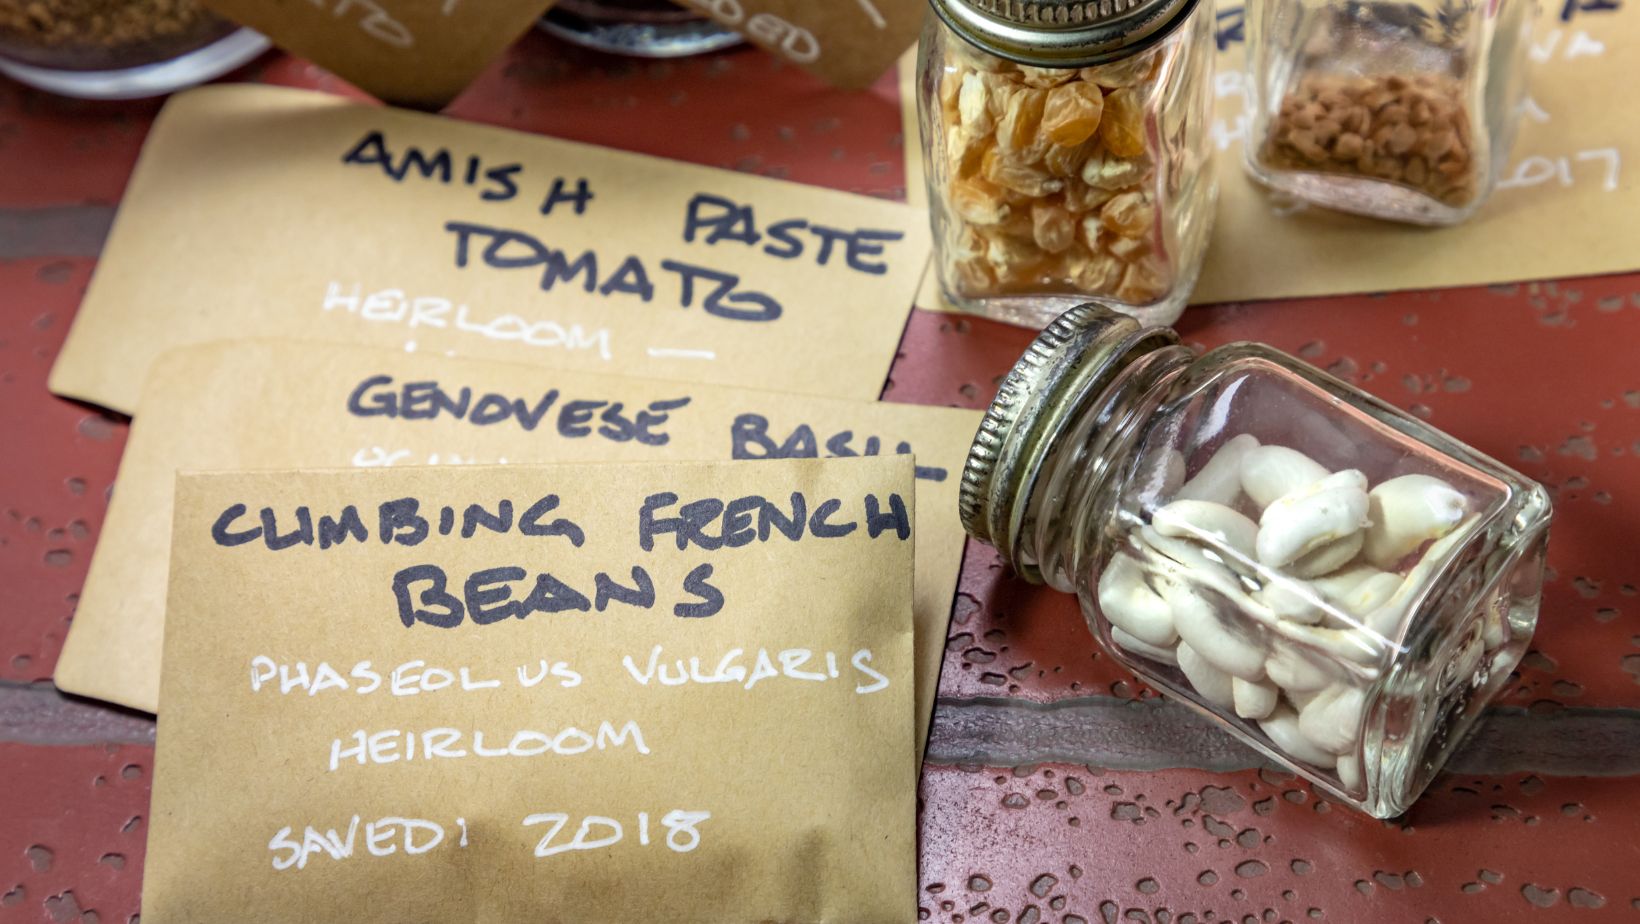 AMISH PASTE
TOMATO
HEIRLOOM —
GENOVESE BASIL
CLIMBING FRENCH
BEANS
PHASEOLUS VULGARIS
HEIRLOOM
SAVED: 2018
2017